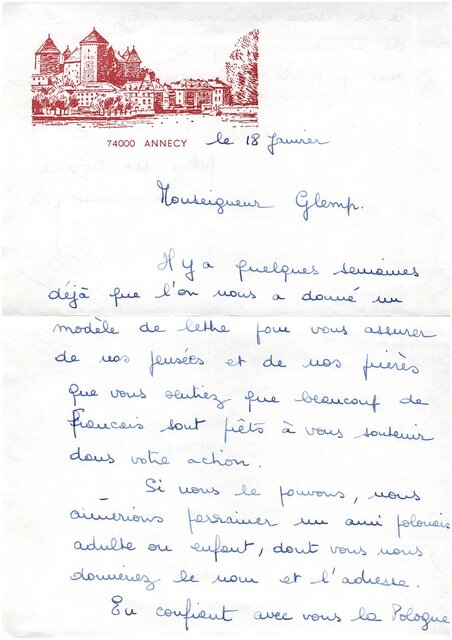 74000 ANNECY le 18 Janvier
Monseigneur Glemp.
Il y a quelques semaines
déjà que l'on nous a donné un
modèle de lettre pour vous assurer
de nos pensées et de nos prières
que vous sentiez que beaucoup de
Francais sont prêts à vous soutenir
dans votre action.
Si nous le pouvons, nous
aimerions parrainer un ami polonais
adulte ou enfant, dont vous nous
donneriez le nom et l'adresse.
En confiant avec vous la Pologne